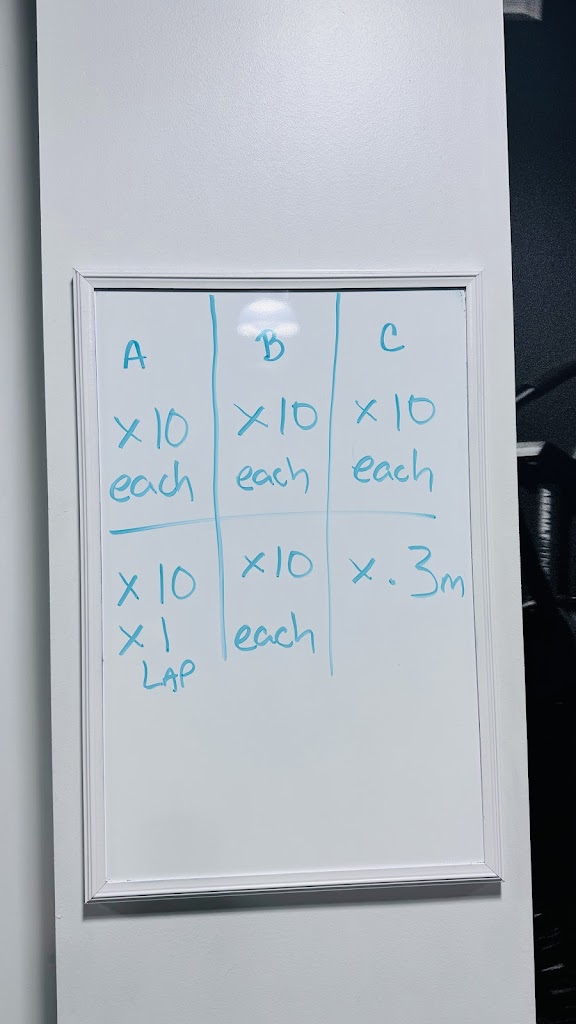 A B C
x10 x10 x10
each each each
x10 x10 x.3m
x1 each
LAP